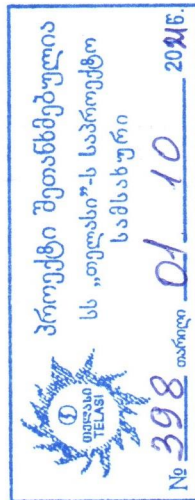 პროექტი შეთანხმებულია
სს „თელასი"-ს საპროექტო
სამსახური
თელასი
TELASI
№ 398 თარიღი 01 10 2021წ.